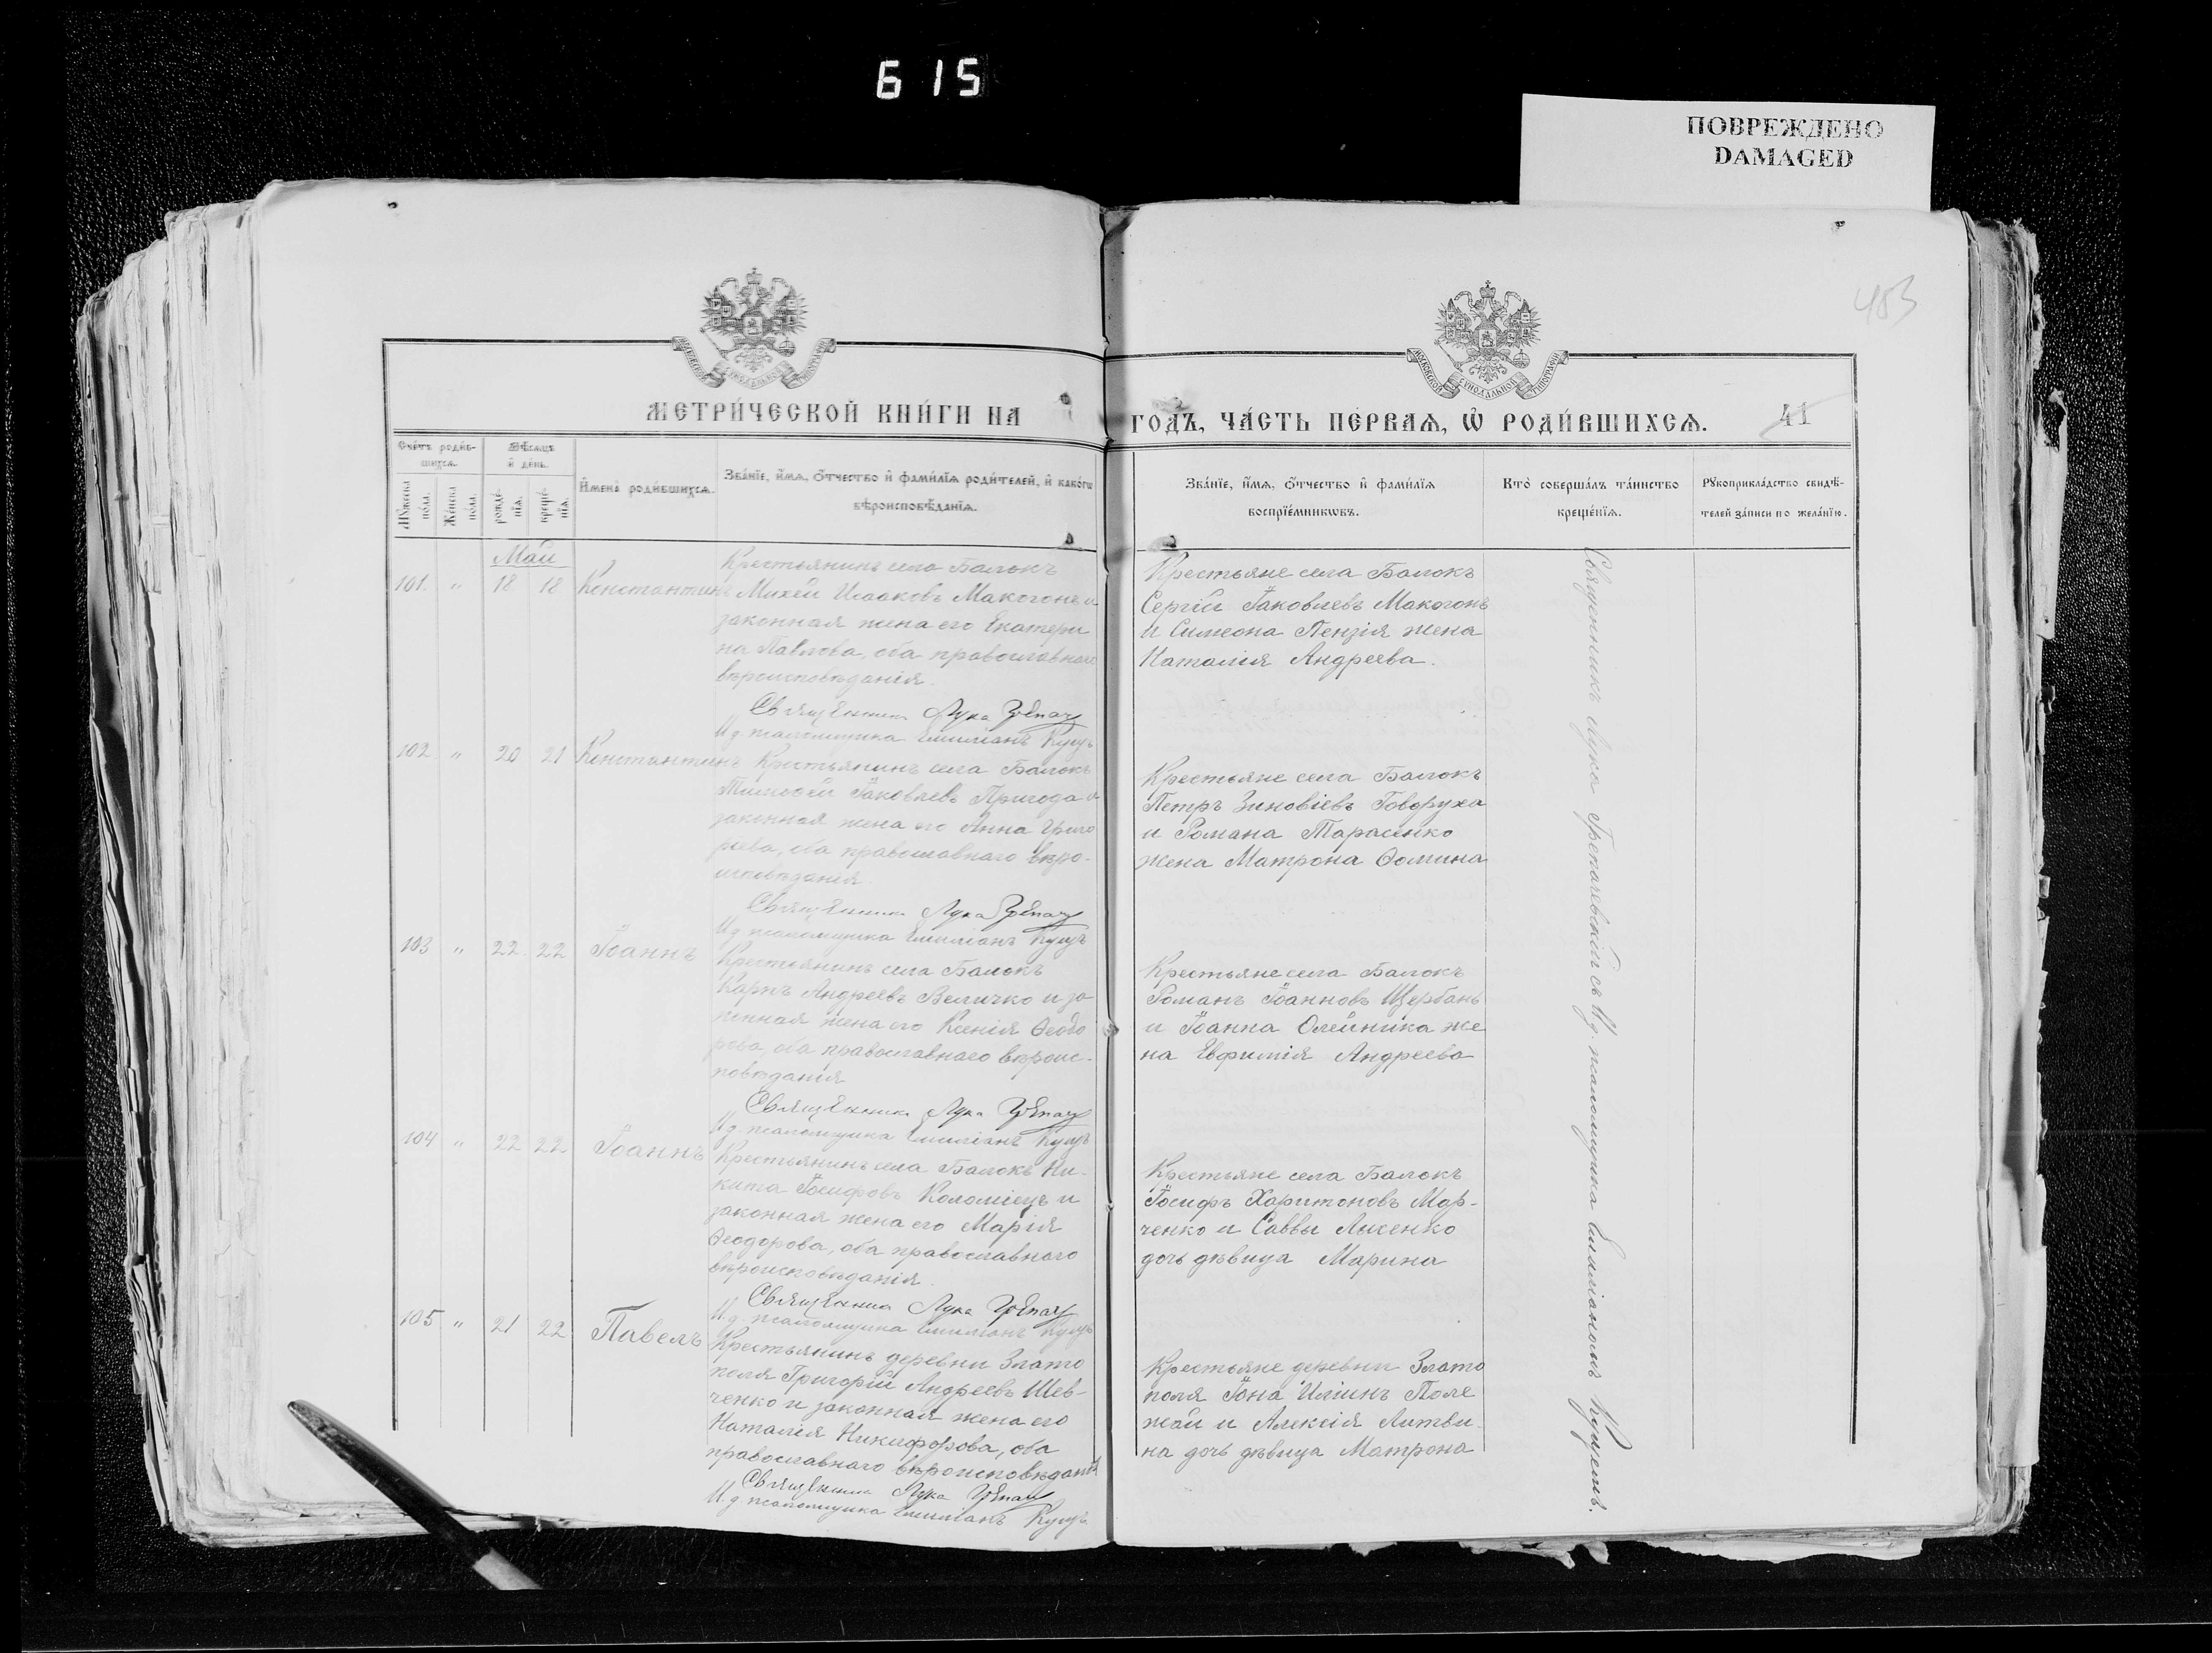 615
ПОВРЕЖДЕНО
DAMAGED
403
МОСКОВСКОЙ СѴНОДАЛЬНОЙ ТИПОГРАФІИ
МЕТРИ́ЧЕСКОЙ КНИ́ГИ НА
ГОДЪ, ЧА́СТЬ ПЕ́РВАѦ, Ѡ҆ РОДИ́ВШИХСѦ.
41
Сче́тъ роди́в-
шихсѧ.
Мꙋ́жеска по́ла.
Же́нска по́ла.
Мѣ́сѧцъ
и҆ де́нь.
рожде́-
нїѧ.
креще́-
нїѧ.
И҆мена̀ роди́вшихсѧ.
Зва́нїе, и҆́мѧ, ѻ҆́тчество и҆ фами́лїѧ роди́телей, и҆ како́гѡ
вѣроисповѣ́данїѧ.
Зва́нїе, и҆́мѧ, ѻ҆́тчество и҆ фами́лїѧ
воспрїе́мникѡвъ.
Кто̀ соверша́лъ та́инство
креще́нїѧ.
Рꙋкоприкла́дство свидѣ́-
телей за́писи по жела́нїю.
Май
101. " 18 18 Константинъ
Крестьянинъ села Балокъ
Михей Исааковъ Макогонъ и
законная жена его Екатери
на Павлова, оба православнаго
вѣроисповѣданія.
Священникъ Лука Грепач
И д. псаломщика Емиліанъ Куцъ
Крестьяне села Балокъ
Сергій Іаковлевъ Макогонъ
и Симеона Пензія жена
Наталія Андреева.
102 " 20 21 Константинъ
Крестьянинъ села Балокъ
Тимофей Іаковлевъ Пригода и
законная жена его Анна Григо
рьева, оба православнаго вѣро-
исповѣданія.
Священникъ Лука Грепач
И д псаломщика Емиліанъ Куцъ
Крестьяне села Балокъ
Петръ Зиновіевъ Говоруха
и Романа Тарасенко
жена Матрона Ѳомина
103 " 22 22 Іоаннъ
Крестьянинъ села Балокъ
Карпъ Андреевъ Величко и за
конная жена его Ксенія Ѳеодо
рова, оба православнаго вѣроис-
повѣданія
Священникъ Лука Грепач
И д. псаломщика Емиліанъ Куцъ
Крестьяне села Балокъ
Романъ Іоанновъ Щербань
и Іоанна Олейника же
на Евфимія Андреева
104 " 22 22 Іоаннъ
Крестьянинъ села Балокъ Ни-
кита Іосифовъ Коломіецъ и
законная жена его Марія
Ѳеодорова, оба православнаго
вѣроисповѣданія.
Священникъ Лука Грепач
И.д. псаломщика Емиліанъ Куцъ
Крестьяне села Балокъ
Іосифъ Харитоновъ Мар-
ченко и Саввы Лысенко
дочь дѣвица Марина
105 " 21 22 Павелъ
Крестьянинъ деревни Злато
поля Григорій Андреевъ Шев-
ченко и законная жена его
Наталія Никифорова, оба
православнаго вѣроисповѣданія
Священникъ Лука Грепач
И.д. псаломщика Емиліанъ Куцъ.
Крестьяне деревни Злато
поля Іона Иліинъ Поле
жай и Алексія Литви-
на дочь дѣвица Матрона
Священникъ Лука Грепачевскій съ И.д. псаломщика Емиліаномъ Куцемъ.